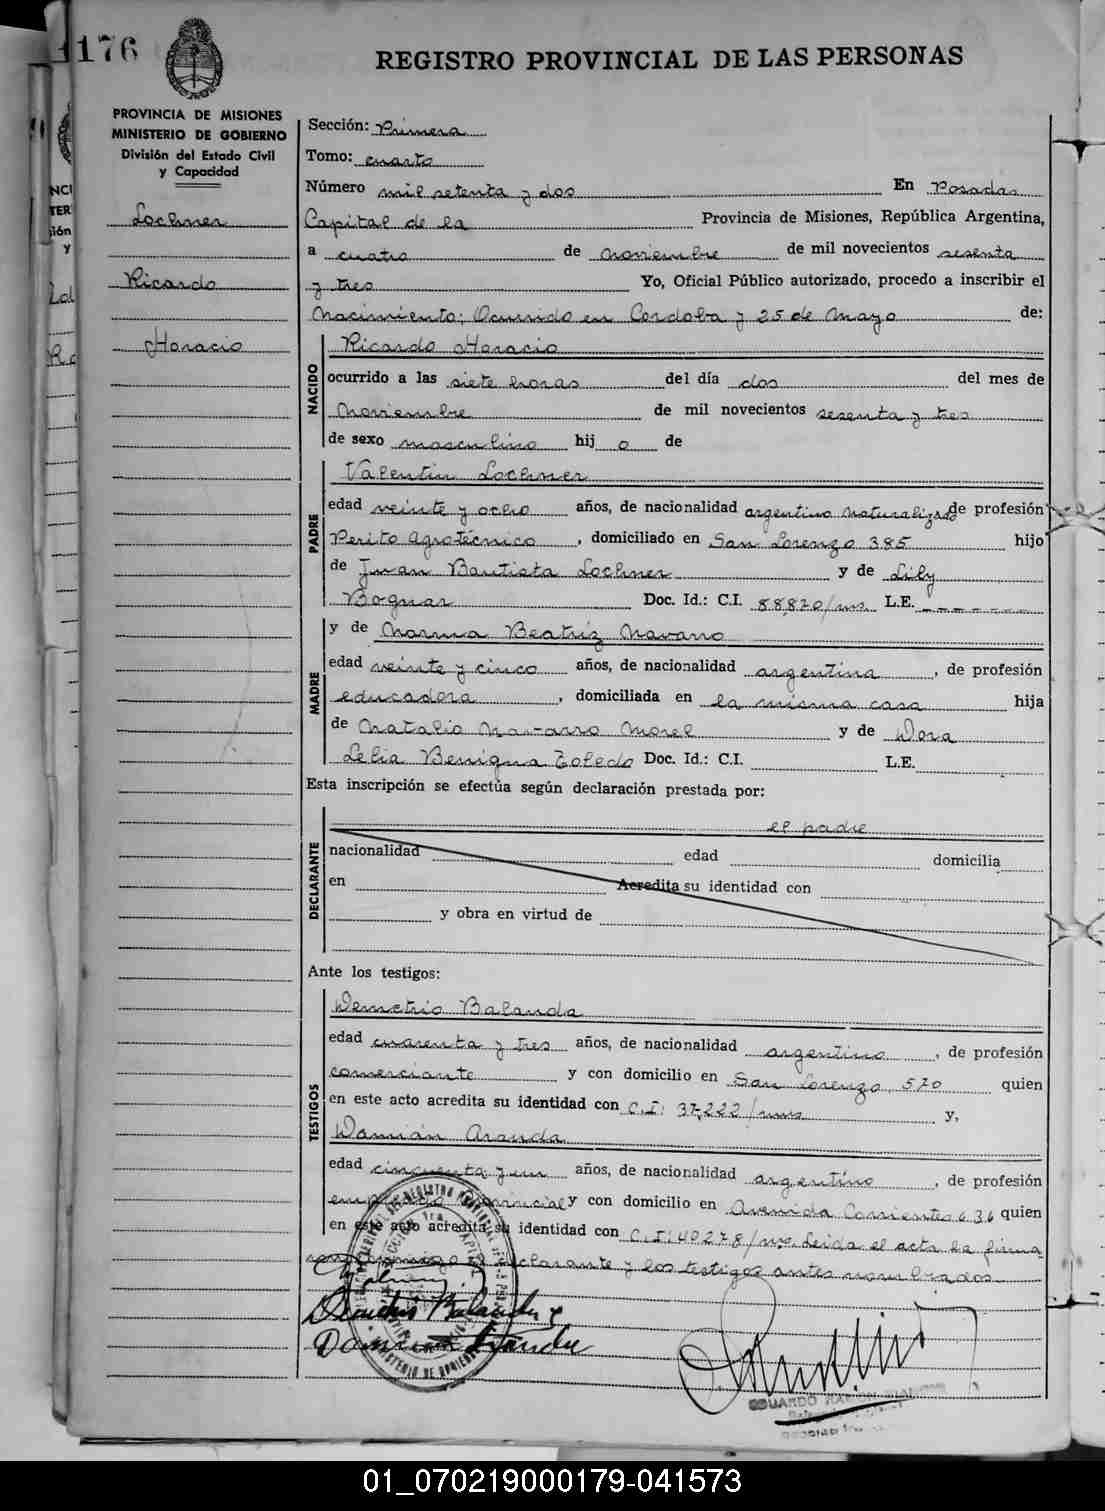 1176
REGISTRO PROVINCIAL DE LAS PERSONAS
PROVINCIA DE MISIONES
MINISTERIO DE GOBIERNO
División del Estado Civil
y Capacidad
Lochner
Ricardo
Horacio
Sección: Primera
Tomo: cuarto
Número mil setenta y dos En Posadas
Capital de la Provincia de Misiones, República Argentina,
a cuatro de noviembre de mil novecientos sesenta
y tres Yo, Oficial Público autorizado, procedo a inscribir el
Nacimiento: Ocurrido en Cordoba y 25 de Mayo de:
NACIDO
Ricardo Horacio
ocurrido a las siete horas del día dos del mes de
Noviembre de mil novecientos sesenta y tres
de sexo masculino hij o de
PADRE
Valentin Lochner
edad veinte y ocho años, de nacionalidad argentino naturalizado de profesión
Perito Agrotécnico, domiciliado en San Lorenzo 385 hijo
de Juan Bautista Lochner y de Lily
Bognar Doc. Id.: C.I. 88,820/ms. L.E. _ _ _ _ _ _ _
MADRE
y de Norma Beatriz Navarro
edad veinte y cinco años, de nacionalidad argentina, de profesión
educadora, domiciliada en la misma casa hija
de Natalio Navarro Morel y de Dora
Lelia Benigna Toledo Doc. Id.: C.I. L.E.
Esta inscripción se efectúa según declaración prestada por:
DECLARANTE
el padre
nacionalidad edad domicilia
en Acredita su identidad con
y obra en virtud de
Ante los testigos:
TESTIGOS
Demetrio Balanda
edad cuarenta y tres años, de nacionalidad argentino, de profesión
comerciante y con domicilio en San Lorenzo 570 quien
en este acto acredita su identidad con C.I: 37,222/mns y,
Damián Aranda
edad cincuenta y un años, de nacionalidad argentino, de profesión
empleado provincial y con domicilio en Avenida Corrientes 636 quien
en este acto acredita su identidad con C.I: 40278/ms. Leida el acta la firma
conmigo el declarante y los testigos antes nombrados.
Demetrio Balanda
Damian Aranda
EDUARDO RAMON
01_070219000179-041573